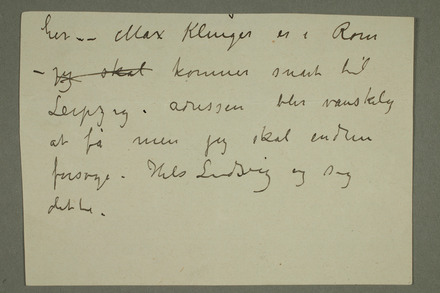 her -- Max Klinger er i Rom
- jeg skal kommer snart til
Leipzig. adressen blir vanskelig
at få men jeg skal endnu
forsøge. Hils Ludvig og sig
dette.